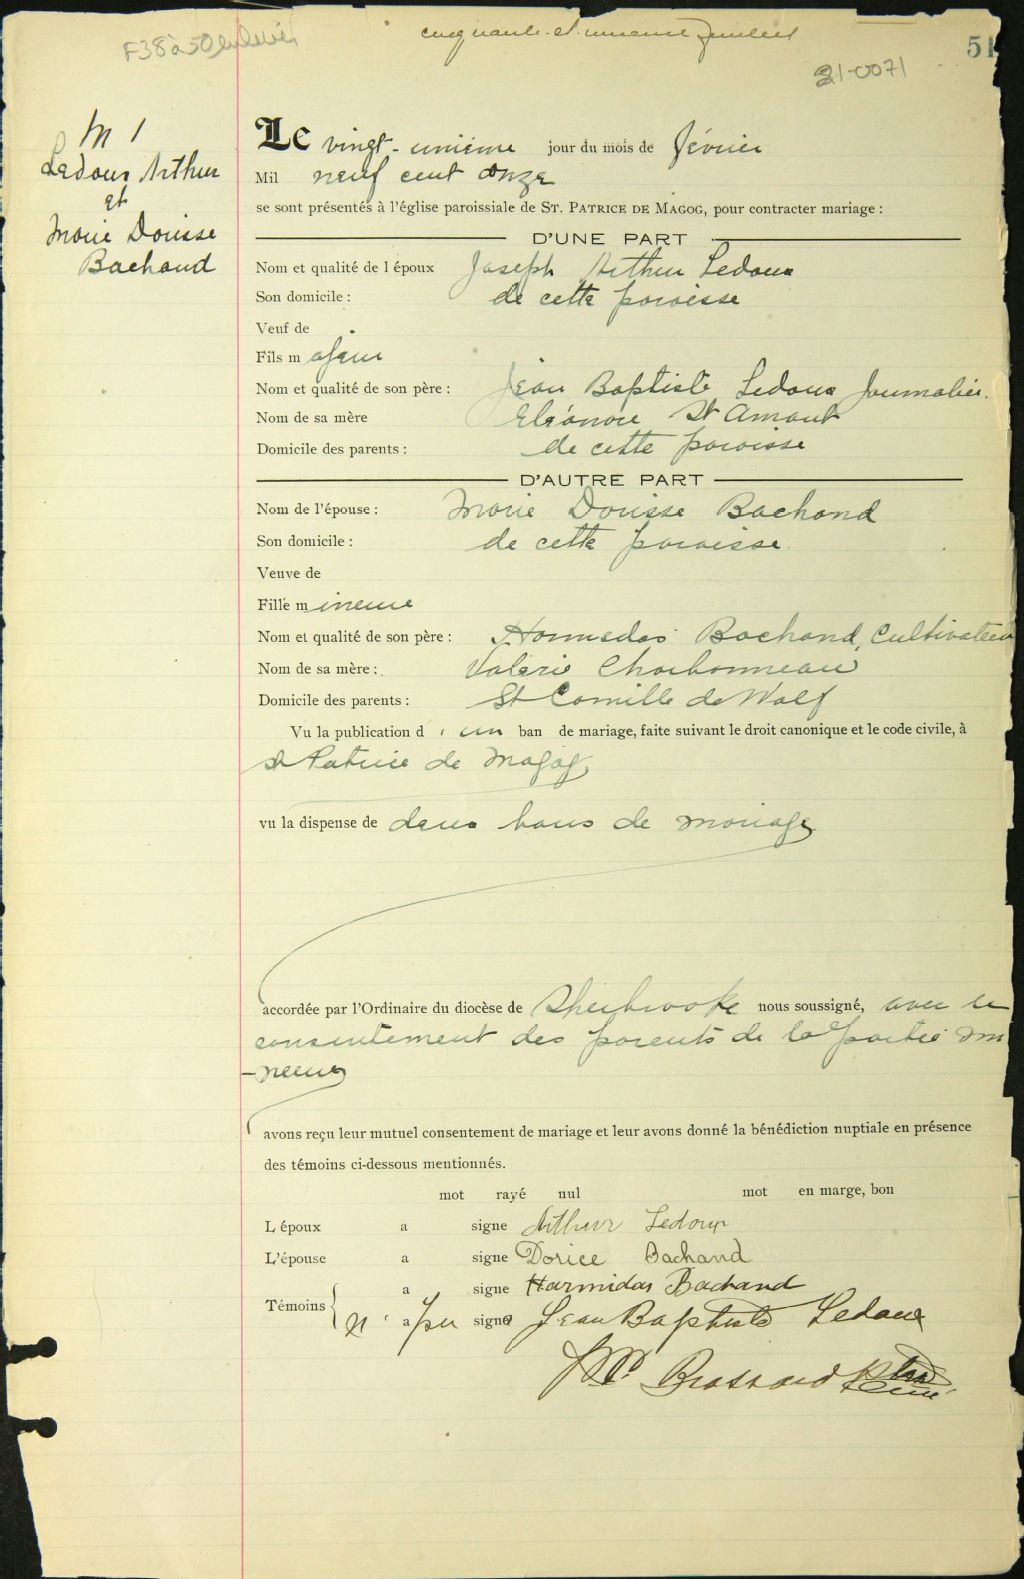 F38 à 50 enlevés
cinquante-et-unième feuillet
51
21-0071
M 1
Ledoux Arthur
et
Marie Dorisse
Bachand
Le vingt-unième jour du mois de février
Mil neuf cent onze
se sont présentés à l'église paroissiale de ST. PATRICE DE MAGOG, pour contracter mariage :
D'UNE PART
Nom et qualité de l époux Joseph Arthur Ledoux
Son domicile : de cette paroisse
Veuf de
Fils majeur
Nom et qualité de son père : Jean Baptiste Ledoux Journalier.
Nom de sa mère Eléonore St Amant
Domicile des parents : de cette paroisse
D'AUTRE PART
Nom de l'épouse : Marie Dorisse Bachand
Son domicile : de cette paroisse.
Veuve de
Fille mineure
Nom et qualité de son père : Hormidas Bachand, Cultivateur
Nom de sa mère : Valérie Charbonneau
Domicile des parents : St Camille de Wolf
Vu la publication d'un ban de mariage, faite suivant le droit canonique et le code civile, à
St Patrice de Magog
vu la dispense de deux bans de mariage
accordée par l'Ordinaire du diocèse de Sherbrooke nous soussigné, avec le
consentement des parents de la partie mi
-neure
avons reçu leur mutuel consentement de mariage et leur avons donné la bénédiction nuptiale en présence
des témoins ci-dessous mentionnés.
mot rayé nul mot en marge, bon
L époux a signe Arthur Ledoux
L'épouse a signe Dorice Bachand
a signe Harmidas Bachand
Témoins { n' a pu signe Jean Baptiste Ledoux
Brassard Ptre
Curé